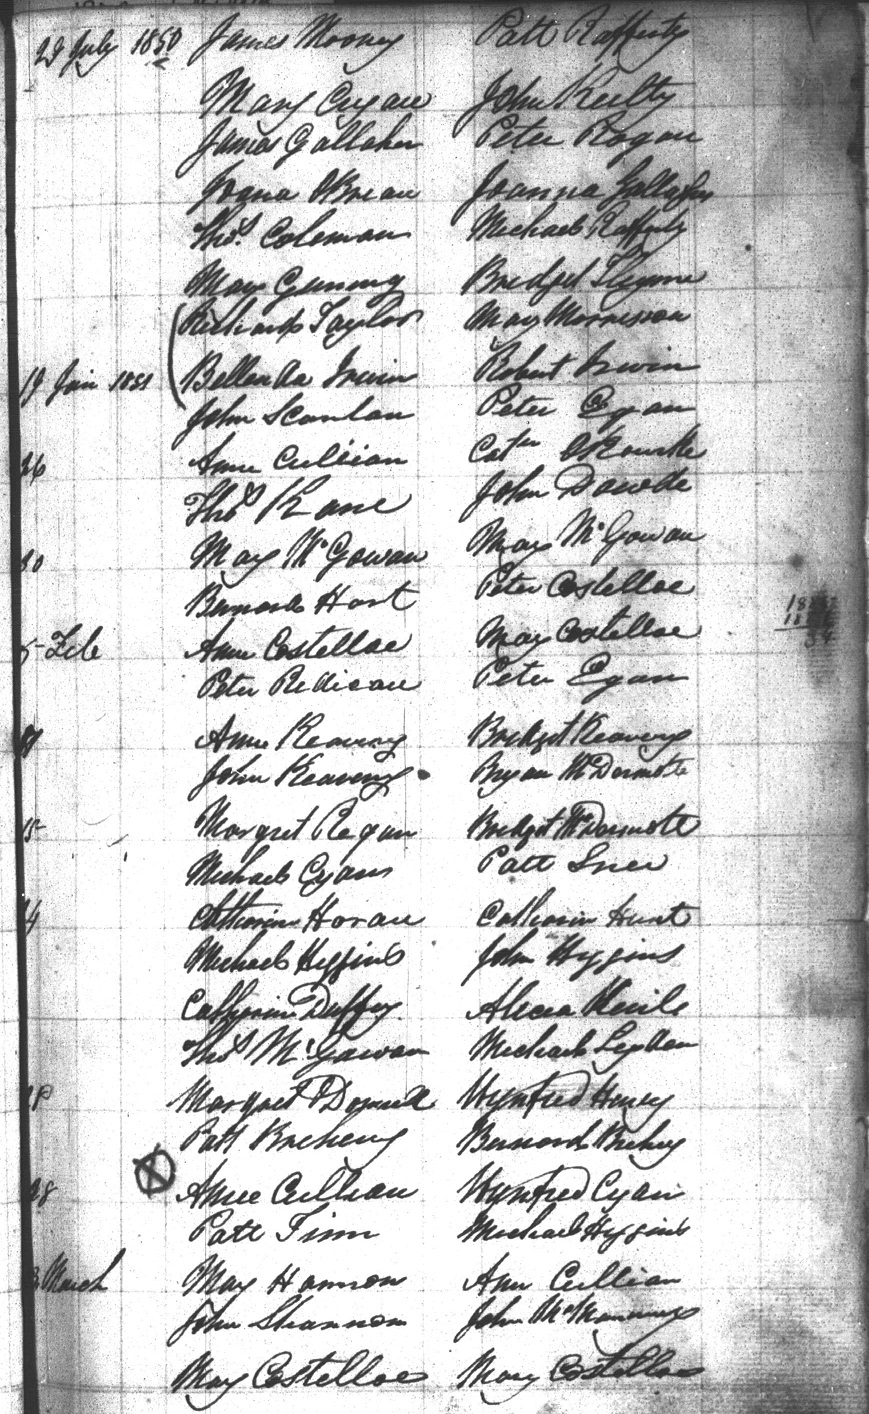 29 July 1850 James Mooney Patt Rafferty
Mary Cryan John Keilty
James Gallaher Peter Rogan
Joana OBrian Joanna Gallagher
Thos. Coleman Michael Rafferty
Mary Gunning Bridget
Richard Taylor Mary Morrisson
19 Jan 1851 Bellenda Irwin Robert Irwin
John Scanlan Peter Egan
26 Anne Cullian Catn ORourke
Thos Kane John
30 Mary McGowan Mary McGowan
Bernard Hart Peter Costelloe
5 Feb Ann Costelloe Mary Costelloe
Peter Redican Peter Egan
Anne Keaveny Bridget Keaveny
John Keaveny Bryan McDermott
15 Margret Regan Bridget McDermott
Michael Cyan Patt
Catharine Horan Catharine Hunt
Michael Higgins John Higgins
Catharine Duffey Alicia
Thos McGowan Michael Leydan
Margret ODonnell Wynfred Henry
Patt Breheny Bernard Brehny
28 Anne Cullian Wynfred Cyan
Patt Finn Michael Higgins
3 March Mary Hannon Ann Cullian
John Shannon John McManamy
Mary Costelloe Mary Costelloe